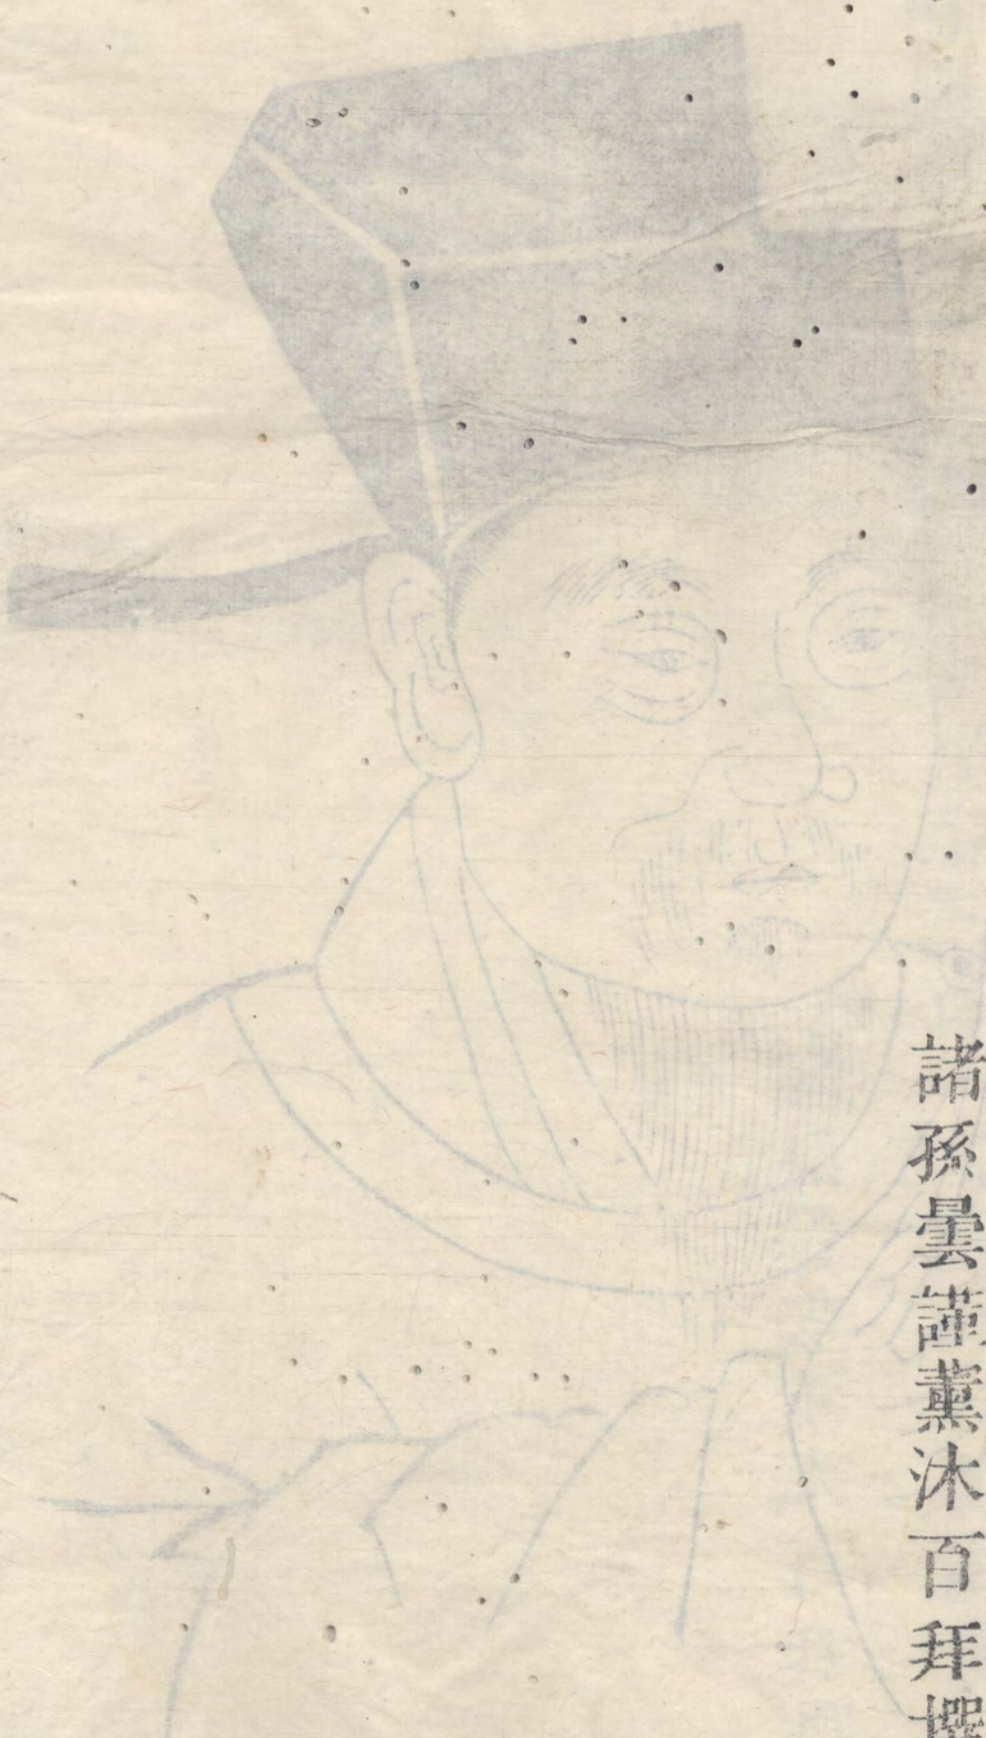 諸孫曇謹薰沐百拜撰